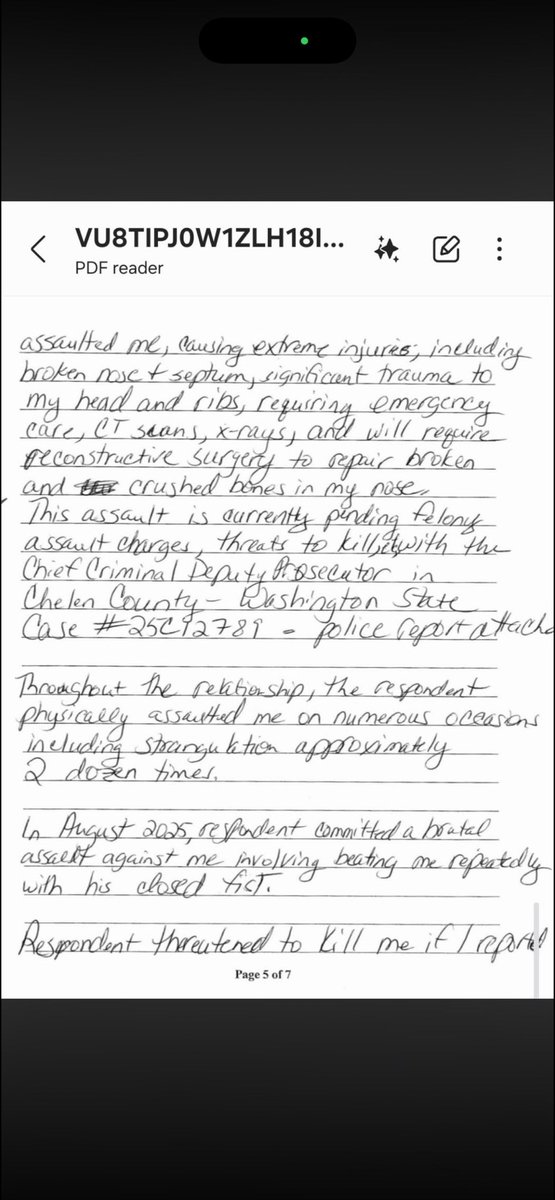 VU8TIPJ0W1ZLH18I...
PDF reader
assaulted me, causing extreme injuries, including
broken nose + septum, significant trauma to
my head and ribs, requiring emergency
care, CT scans, x-rays, and will require
reconstructive surgery to repair broken
and crushed bones in my nose.
This assault is currently pending felony
assault charges, threats to kill, with the
Chief Criminal Deputy Prosecutor in
Chelen County - Washington State
Case #25C12789 - police report attache
Throughout the relationship, the respondent
physically assaulted me on numerous occasions
including strangulation approximately
2 dozen times.
In August 2025, respondent committed a brutal
assault against me involving beating me repeatedly
with his closed fist.
Respondent threatened to kill me if I reported
Page 5 of 7